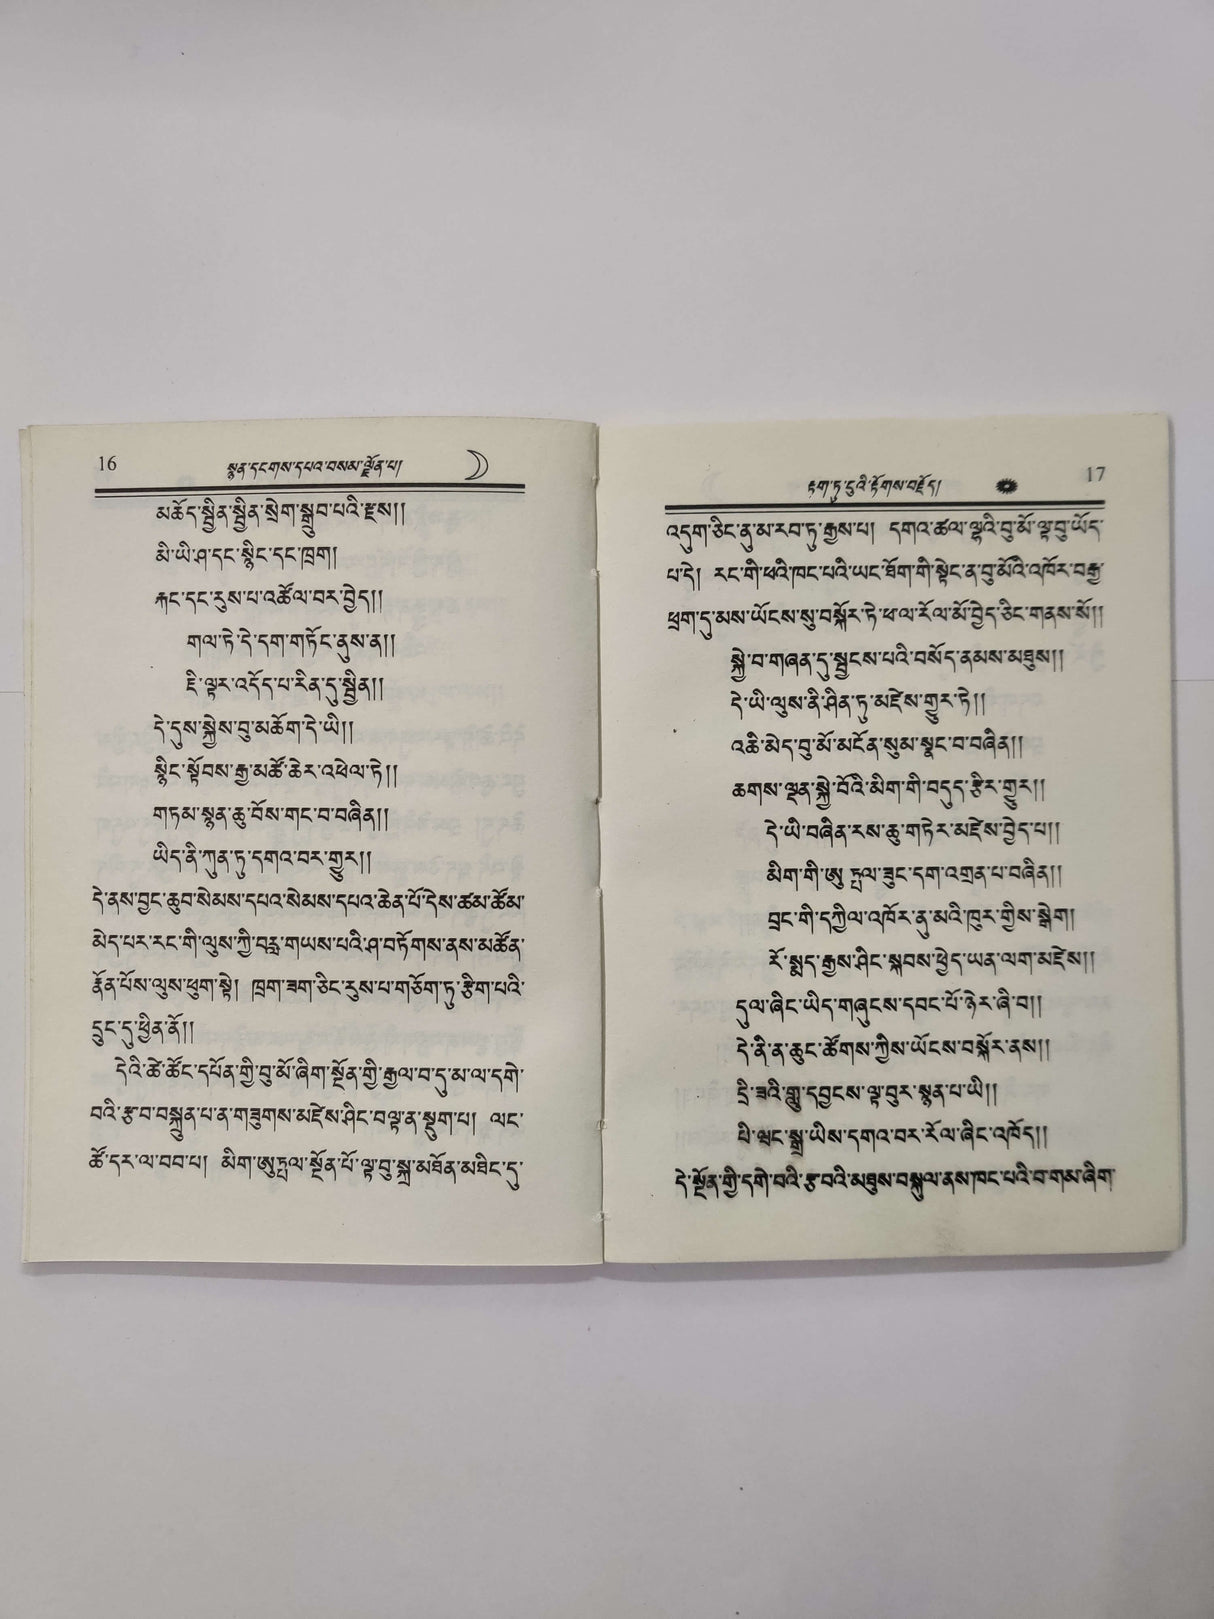 16
སྙན་དངགས་དཔའ་བསམ་ལྗོན་པ།
མཆོད་སྦྱིན་སྦྱིན་སྲེག་སྒྲུབ་པའི་རྫས།།
མི་ཡི་ཤ་དང་སྙིང་དང་ཁྲག།
རྐང་དང་རུས་པ་འཚོལ་བར་བྱེད།།
གལ་ཏེ་དེ་དག་གཏོང་ནུས་ན།།
ཇི་ལྟར་འདོད་པ་རིན་དུ་སྦྱིན།།
དེ་དུས་སྐྱེས་བུ་མཆོག་དེ་ཡི།།
སྙིང་སྟོབས་རྒྱ་མཚོ་ཆེར་འཕེལ་ཏེ།།
གཏམ་སྙན་ཆུ་བོས་གང་བ་བཞིན།།
ཡིད་ནི་ཀུན་ཏུ་དགའ་བར་གྱུར།།
དེ་ནས་བྱང་ཆུབ་སེམས་དཔའ་སེམས་དཔའ་ཆེན་པོ་དེས་ཚམ་ཚོམ་
མེད་པར་རང་གི་ལུས་ཀྱི་བརླ་གཡས་པའི་ཤ་བཏོགས་ནས་མཚོན་
རྣོན་པོས་ལུས་ཕུག་སྟེ། ཁྲག་ཟག་ཅིང་རུས་པ་གཅོག་ཏུ་རྩིག་པའི་
དྲུང་དུ་ཕྱིན་ནོ།།
དེའི་ཚེ་ཚོང་དཔོན་གྱི་བུ་མོ་ཞིག་སྔོན་གྱི་རྒྱལ་བ་དུ་མ་ལ་དགེ་
བའི་རྩ་བ་བསྐྲུན་པ་ན་གཟུགས་མཛེས་ཤིང་བལྟ་ན་སྡུག་པ། ལང་
ཚོ་དར་ལ་བབ་པ། མིག་ཨུཏྤལ་སྔོན་པོ་ལྟ་བུ་སྐྲ་མཐོན་མཐིང་དུ་
17
རྟག་ཏུ་ངུའི་རྟོགས་བརྗོད།
འདུག་ཅིང་ནུ་མ་རབ་ཏུ་རྒྱས་པ། དགའ་ཚལ་ལྷའི་བུ་མོ་ལྟ་བུ་ཡོད་
པ་དེ། རང་གི་ཕའི་ཁང་པའི་ཡང་ཐོག་གི་སྟེང་ན་བུ་མོའི་འཁོར་བརྒྱ་
ཕྲག་དུ་མས་ཡོངས་སུ་བསྐོར་ཏེ་ཕལ་རོལ་མོ་བྱེད་ཅིང་གནས་སོ།།
སྐྱེ་བ་གཞན་དུ་སྦྱངས་པའི་བསོད་ནམས་མཐུས།།
དེ་ཡི་ལུས་ནི་ཤིན་ཏུ་མཛེས་གྱུར་ཏེ།།
འཆི་མེད་བུ་མོ་མངོན་སུམ་སྣང་བ་བཞིན།།
ཆགས་ལྡན་སྐྱེ་བོའི་མིག་གི་བདུད་རྩིར་གྱུར།།
དེ་ཡི་བཞིན་རས་ཆུ་གཏེར་མཛེས་བྱེད་པ།།
མིག་གི་ཨུ་ཏྤལ་ཟུང་དག་འགྲན་པ་བཞིན།།
བྲང་གི་དཀྱིལ་འཁོར་ནུ་མའི་ཁུར་གྱིས་སྒེག།
རོ་སྨད་རྒྱས་ཤིང་སྐབས་ཕྱེད་ཡན་ལག་མཛེས།།
དུལ་ཞིང་ཡིད་གཞུངས་དབང་པོ་ཉེར་ཞི་བ།།
དེ་ནི་ན་ཆུང་ཚོགས་ཀྱིས་ཡོངས་བསྐོར་ནས།།
དྲི་ཟའི་གླུ་དབྱངས་ལྟ་བུར་སྙན་པ་ཡི།།
པི་ཝང་སྒྲ་ཡིས་དགའ་བར་རོལ་ཞིང་འཁོད།།
དེ་སྔོན་གྱི་དགེ་བའི་རྩ་བའི་མཐུས་བསྐུལ་ནས་ཁང་པའི་བ་གམ་ཞིག་